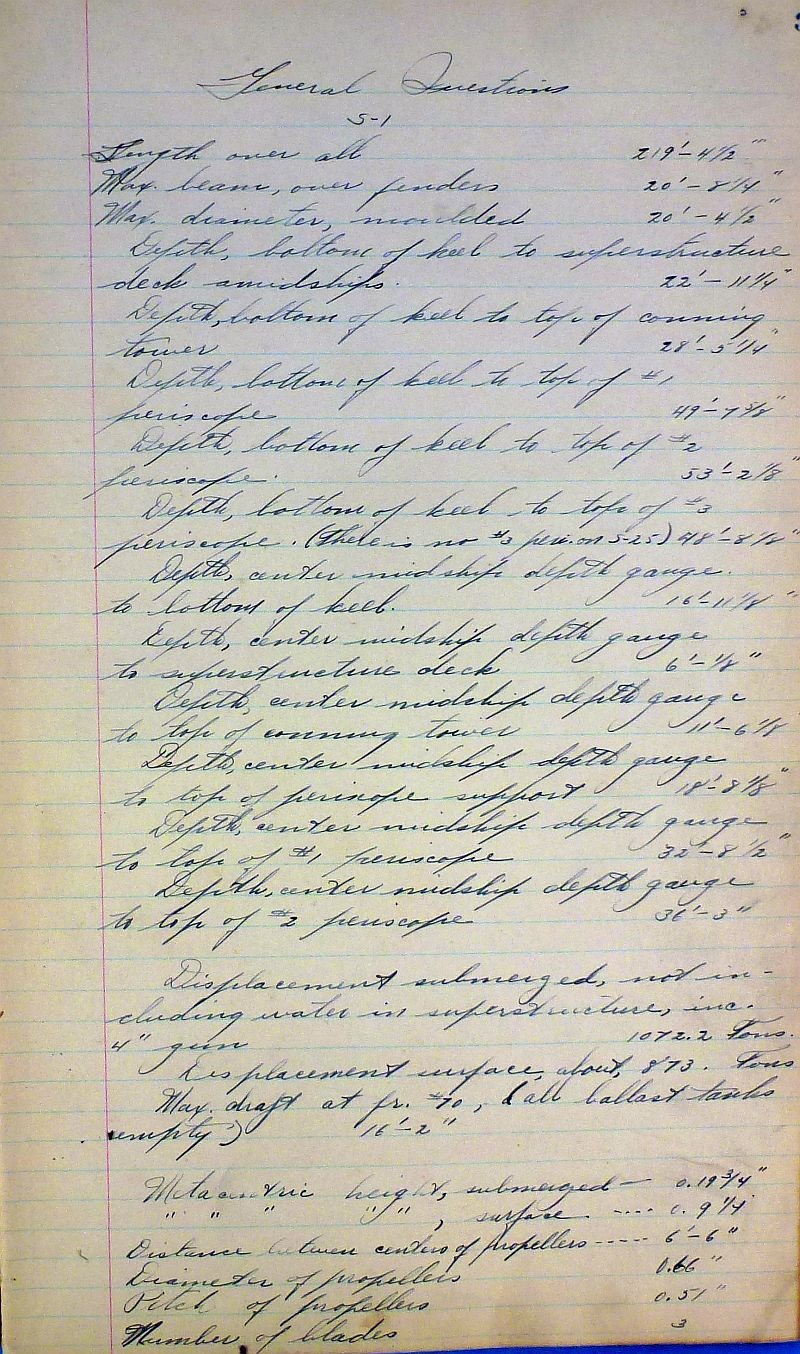 General Questions
S-1
Length over all 219'-4 1/2"
Max. beam, over fenders 20'-8 1/4"
Max. diameter, moulded 20'-4 1/2"
Depth, bottom of keel to superstructure
deck amidships. 22'-11 1/4"
Depth, bottom of keel to top of conning
tower 28'-5 1/4"
Depth, bottom of keel to top of #1
periscope 49'-7 5/8"
Depth, bottom of keel to top of #2
periscope. 53'-2 1/8"
Depth, bottom of keel to top of #3
periscope. (There is no #3 peri. on S-25) 48'-8 1/8"
Depth, center midship depth gauge.
to bottom of keel. 16'-11 1/8"
Depth, center midship depth gauge
to superstructure deck 6'-1/8"
Depth, center midship depth gauge
to top of conning tower 11'-6 1/8
Depth, center midship depth gauge
to top of periscope support 18'-8 1/8"
Depth, center midship depth gauge
to top of #1 periscope 32'-8 1/2"
Depth, center midship depth gauge
to top of #2 periscope 36'-3"
Displacement submerged, not in-
cluding water in superstructure, inc.
4" gun 1072.2 Tons.
Displacement surface, about, 873. Tons
Max. draft at fr. #70, (all ballast tanks
empty) 16'-2"
Metacentric height, submerged — 0.19 3/4"
" " " " " , surface ---- 0. 9 1/4"
Distance between centers of propellers ----- 6'-6"
Diameter of propellers 0.66"
Pitch of propellers 0.51"
Number of blades 3